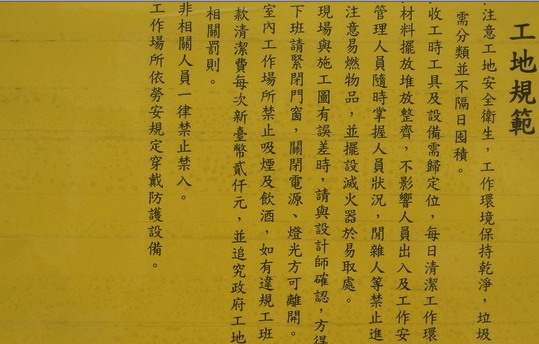 工地規範
注意工地安全衛生，工作環境保持乾淨，垃圾
需分類並不隔日囤積。
收工時工具及設備需歸定位，每日清潔工作環
材料擺放堆放整齊，不影響人員出入及工作安
管理人員隨時掌握人員狀況，閒雜人等禁止進
注意易燃物品，並擺設滅火器於易取處。
現場與施工圖有誤差時，請與設計師確認，方得
下班請緊閉門窗，關閉電源、燈光方可離開。
室內工作場所禁止吸煙及飲酒，如有違規工班
款清潔費每次新臺幣貳仟元，並追究政府工地
相關罰則。
非相關人員一律禁止禁入。
工作場所依勞安規定穿戴防護設備。